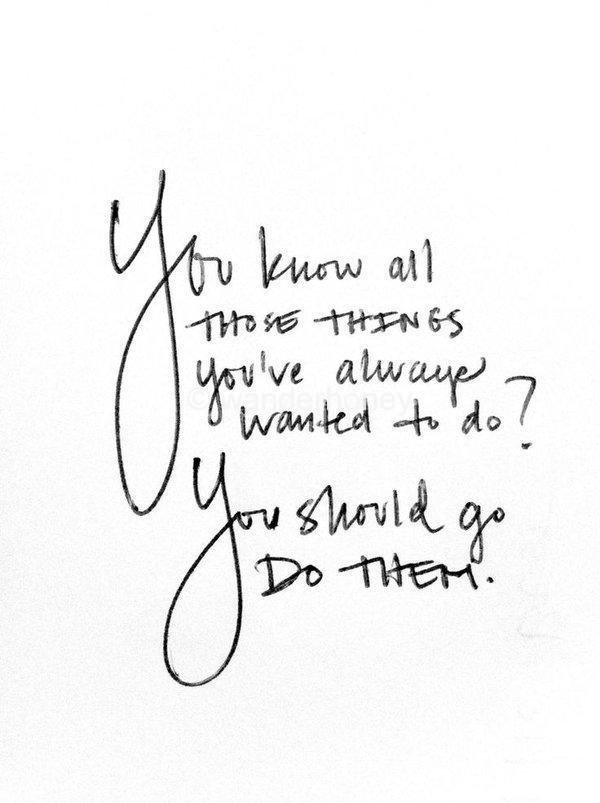 You know all
THOSE THINGS
you've always
wanted to do?
You should go
DO THEM.
©wanderhoney